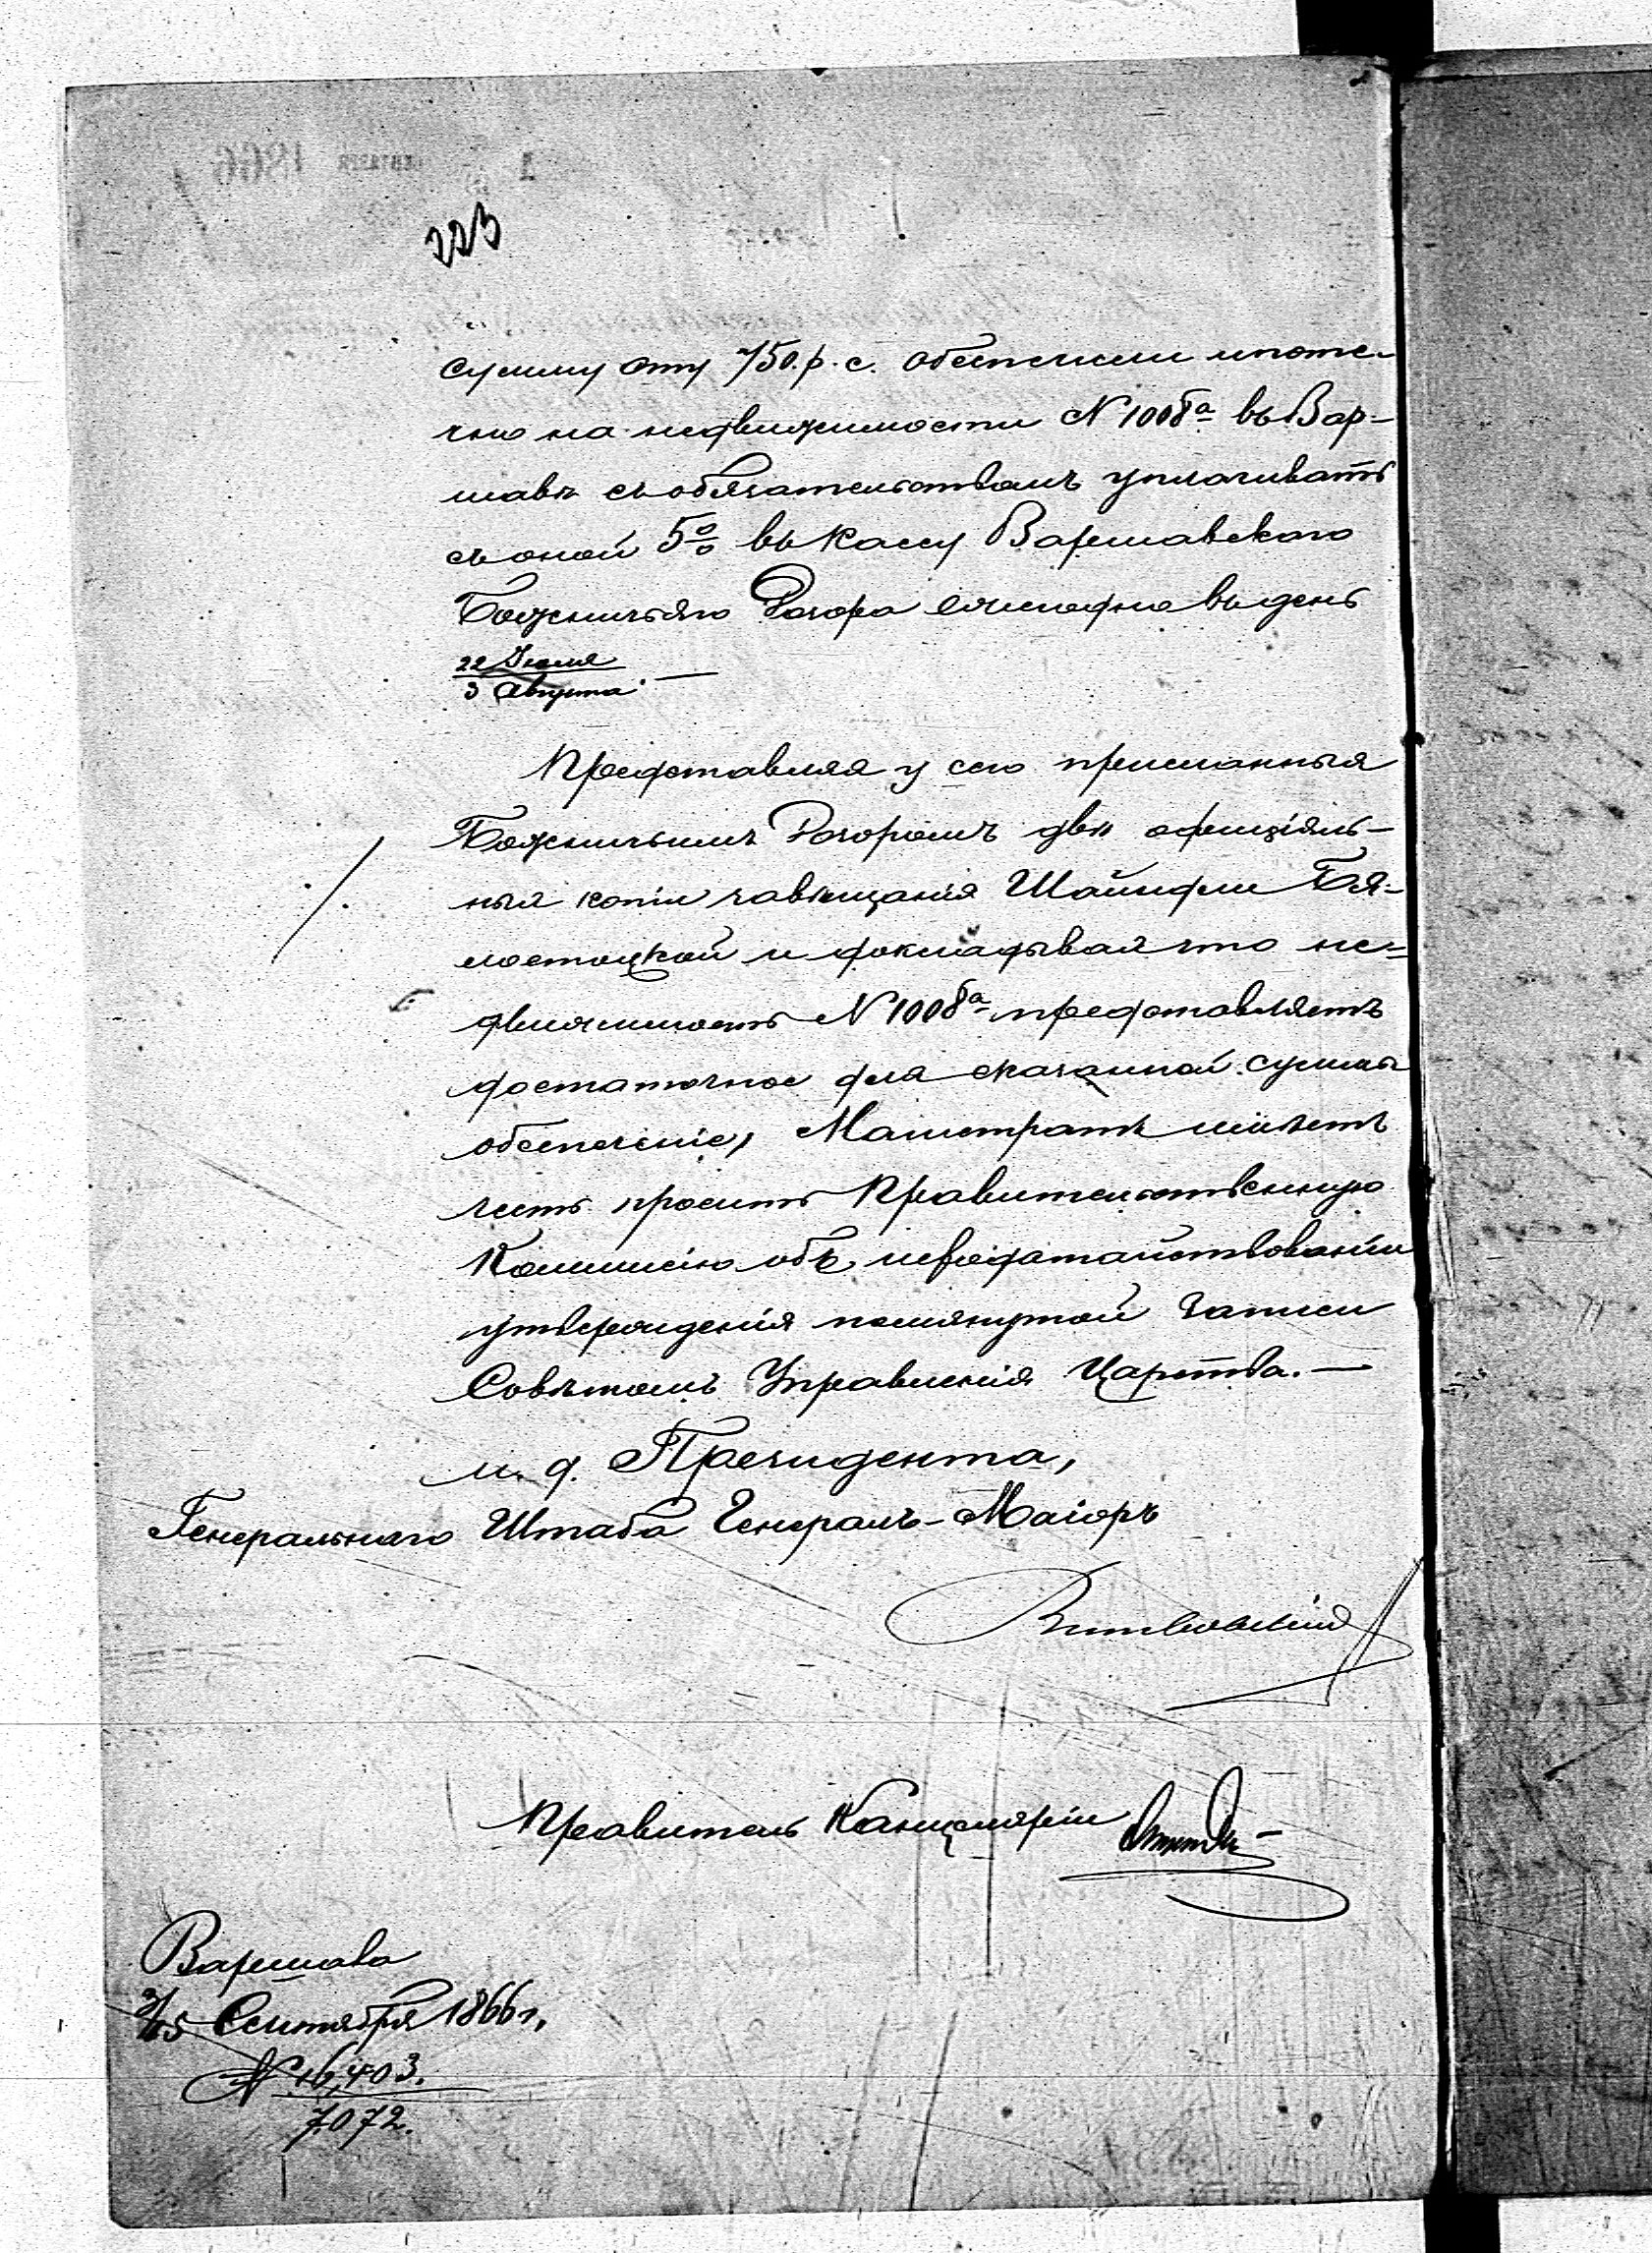 223
сумму эту 750. р. с. обеспечили ипоте-
чно на недвижимости N 1008а въ Вар-
шавѣ съ обязательствомъ уплачивать
съ оной 5% въ Кассу Варшавскаго
Божничьяго Дозора ежегодно въ день
22 Іюля
3 Августа. —
Представляя у сего присланныя
Божничьимъ Дозоромъ двѣ офиціяль-
ныя копіи завѣщанія Шайндли Бя-
лостоцкой и докладывая что не-
движимость N 1008а представляетъ
достаточное для сказанной суммы
обеспеченіе, Магистратъ имѣетъ
честь просить Правительственную
Коммисію объ исходатайствованіи
утвержденія помянутой записи
Совѣтомъ Управленія Царства. —
и. д. Президента,
Генеральнаго Штаба Генералъ-Маіоръ
Витковскій
Правитель Канцеляріи
Варшава
3/15 Сентября 1866 г.
N 16,403.
7072.